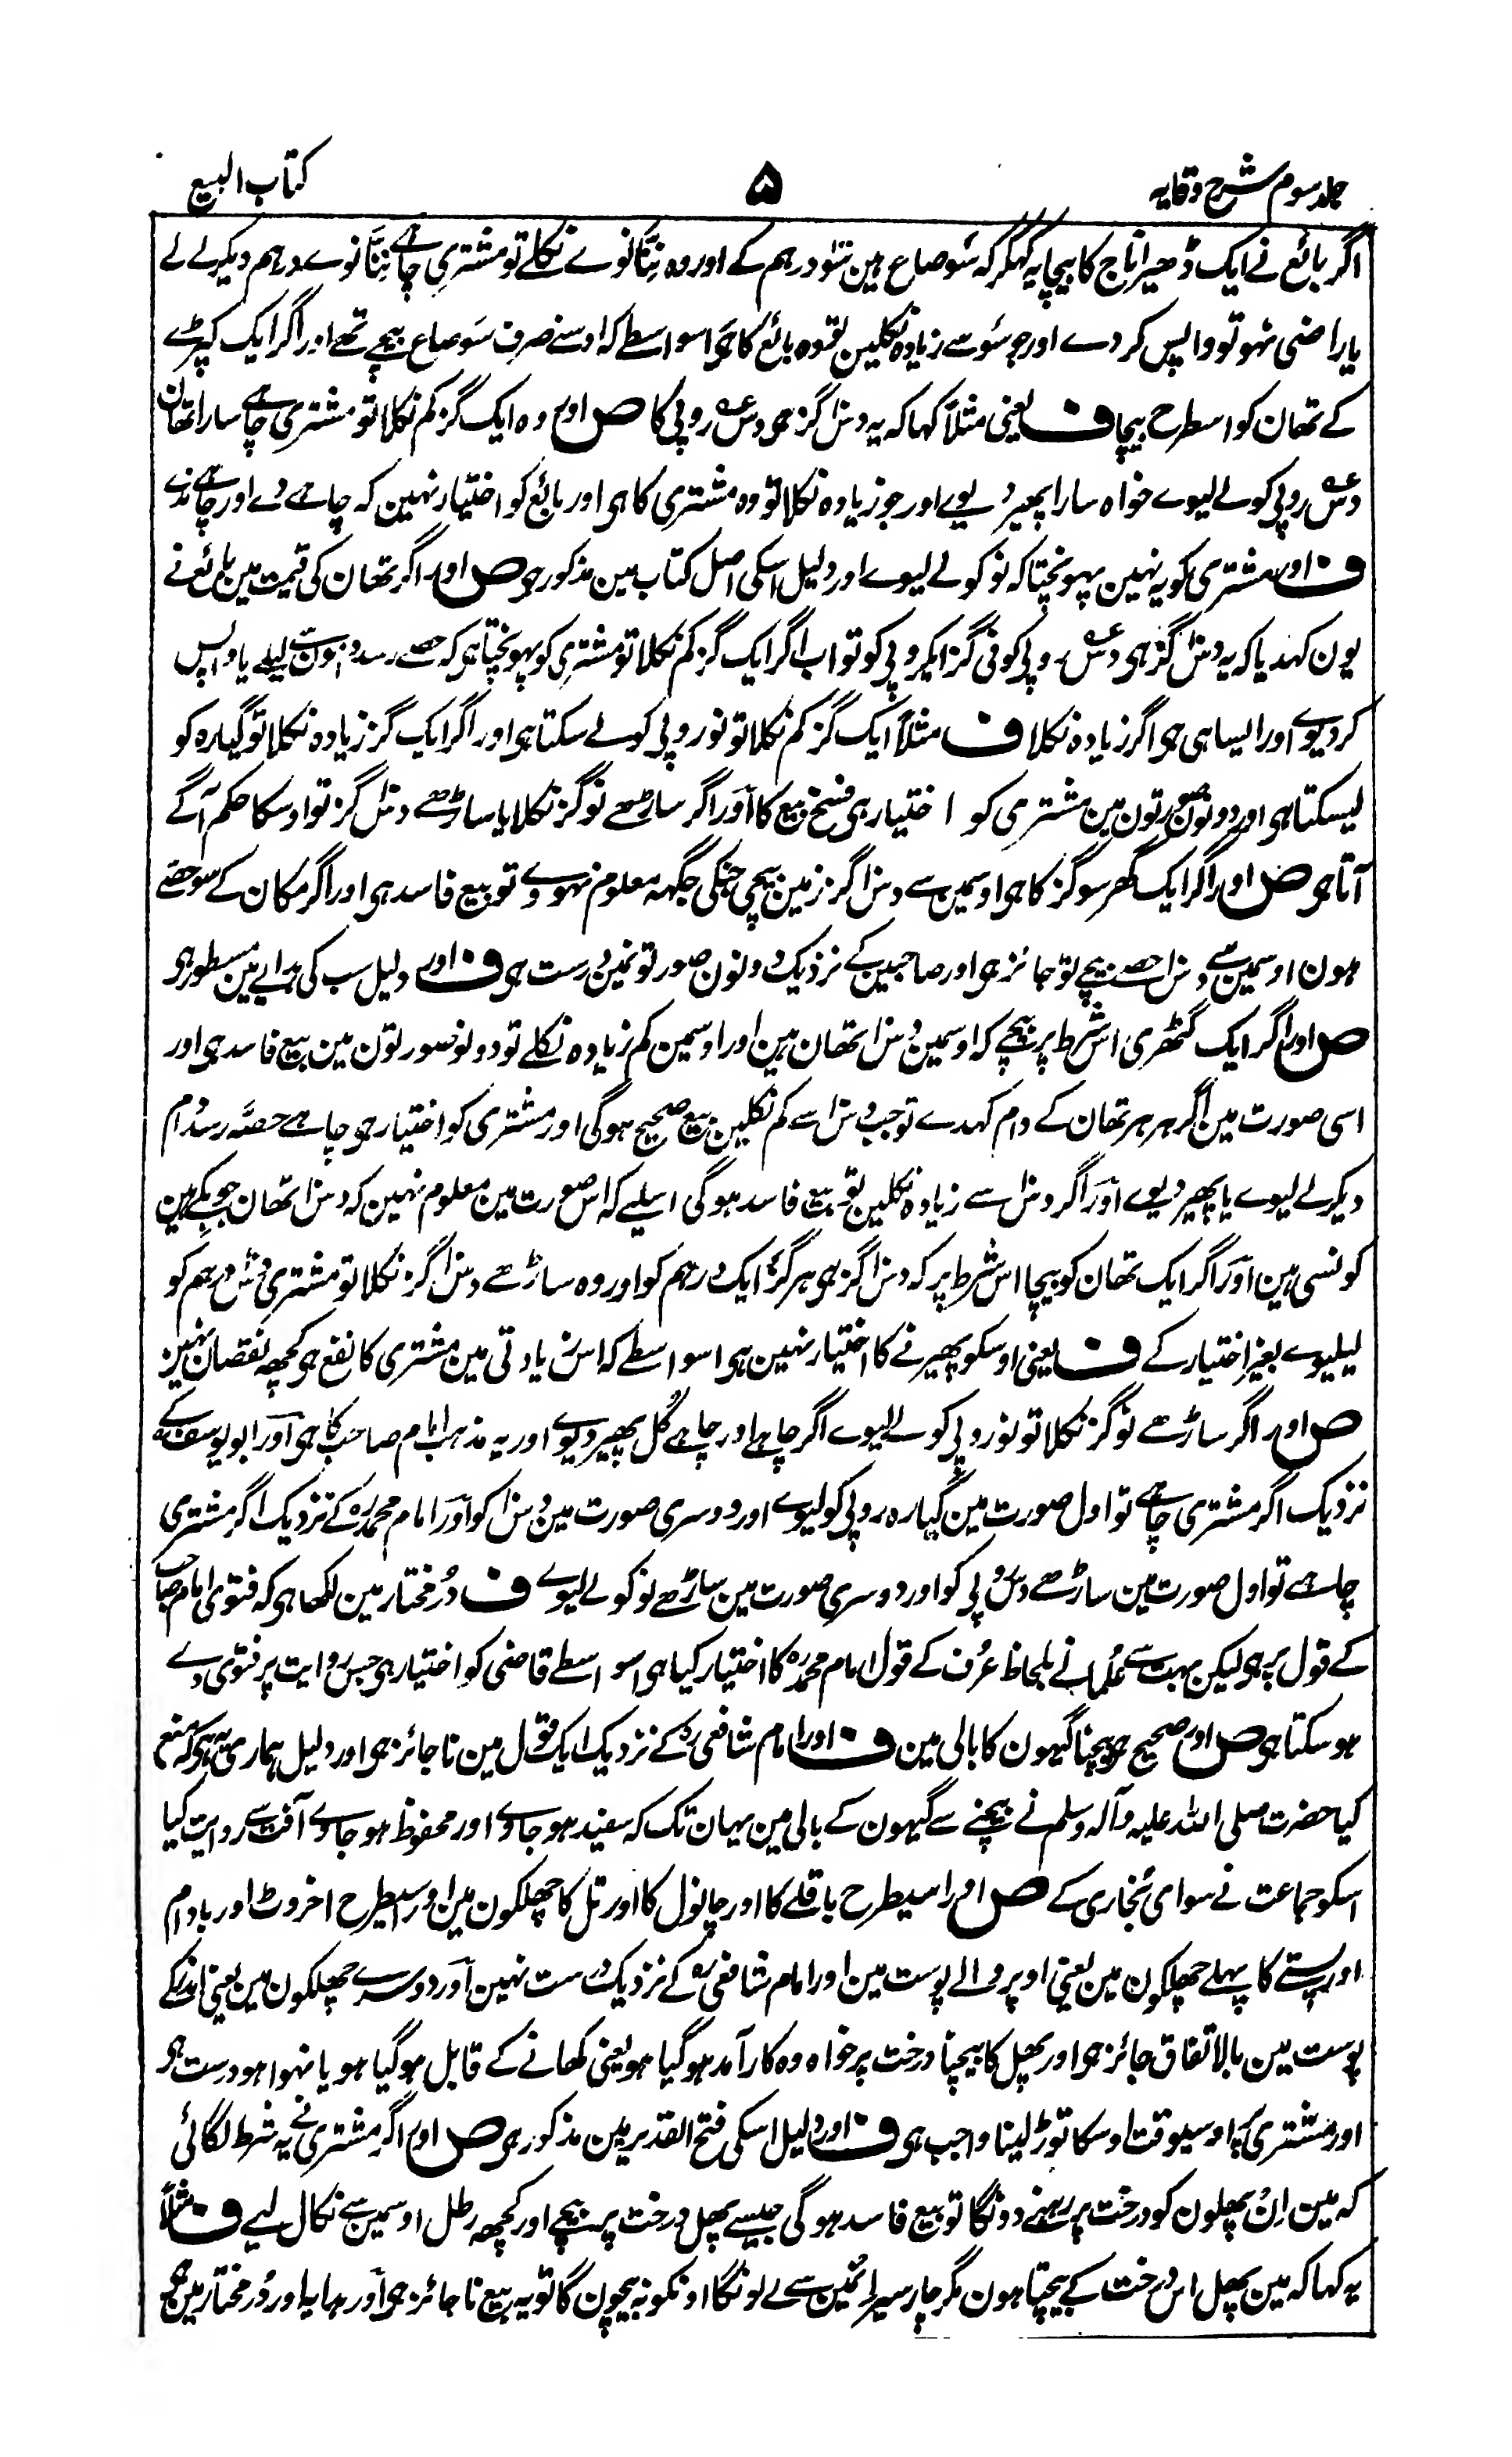 جلد سوم شرح وقایہ
۵
کتاب البیع
اگر بائع نے ایک ڈھیر اناج کا بیچا یہ کہکر کہ سَو صاع ہین سَو درہم کے اور وہ ننانوے نکلے تو مشتری چاہے ننانوے درہم دیکر لے لے
یا راضی نہو تو واپس کر دے اور جو سَو سے زیادہ نکلین تو وہ بائع کا ہی اسواسطے کہ اوسنے صرف سَو صاع بیچے تھے اور اگر ایک کپڑے
کے تھان کو اسطرح بیچا ف یعنی مثلاً کہا کہ یہ دس گز ہی دس روپی کا ص اور وہ ایک گز کم نکلا تو مشتری چاہے سارا تھان
دس روپی کو لے لیوے خواہ سارا پھیر دیوے اور جو زیادہ نکلا تو وہ مشتری کا ہی اور بائع کو اختیار نہین کہ چاہے دے اور چاہے ندے
ف اور مشتری کو یہ نہین پہونچتا کہ نو کو لے لیوے اور دلیل اسکی اصل کتاب مین مذکور ہی ص اور اگر تھان کی قیمت مین بائع نے
یون کہدیا کہ یہ دس گز ہی دس روپی کو فی گز ایکروپی کو تو اب اگر ایک گز کم نکلا تو مشتری کو پہونچتا ہی کہ حصے رسد دامون سے لیلے یا واپس
کر دیوے اور ایسا ہی ہی اگر زیادہ نکلا ف مثلاً ایک گز کم نکلا تو نو روپی کو لے سکتا ہی اور اگر ایک گز زیادہ نکلا تو گیارہ کو
لیسکتا ہی اور دونون صورتون مین مشتری کو اختیار ہی فسخ بیع کا اور اگر ساڑھے نو گز نکلا یا ساڑھے دس گز تو اوسکا حکم آگے
آتا ہی ص اور اگر ایک گھر سو گز کا ہی اوسمین سے دس گز زمین بیچی جنکی جگہہ معلوم نہووے تو بیع فاسد ہی اور اگر مکان کے سو حصے
ہون اوسمین سے دس حصے بیچے تو جائز ہی اور صاحبین کے نزدیک دونون صورتونمین درست ہی ف اور دلیل سب کی ہدایے مین مسطور ہی
ص اور اگر ایک گٹھری اس شرط پر بیچے کہ اوسمین دس تھان ہین اور اوسمین کم زیادہ نکلے تو دونو صورتون مین بیع فاسد ہی اور
اسی صورت مین اگر ہر ہر تھان کے دام کہدے تو جب دس سے کم نکلین بیع صحیح ہوگی اور مشتری کو اختیار ہی چاہے حصّہ رسد دام
دیکر لے لیوے یا پھیر دیوے اور اگر دس سے زیادہ نکلین تو بیع فاسد ہوگی اسلیے کہ اس صورت مین معلوم نہین کہ دس تھان جو بکے ہین
کونسی ہین اور اگر ایک تھان کو بیچا اس شرط پر کہ دس گز ہی ہر گز ایک درہم کو اور وہ ساڑھے دس گز نکلا تو مشتری دس درہم کو
لیلیوے بغیر اختیار کے ف یعنی اوسکو پھیرنے کا اختیار نہین ہی اسواسطے کہ اس زیادتی مین مشتری کا نفع ہی کچھہ نقصان نہین
ص اور اگر ساڑھے نو گز نکلا تو نو روپی کو لے لیوے اگر چاہے اور چاہے کُل پھیر دیوے اور یہ مذہب امام صاحب کا ہی اور ابو یوسف کے
نزدیک اگر مشتری چاہے تو اول صورت مین گیارہ روپی کو لیوے اور دوسری صورت مین دس کو اور امام محمد رہ کے نزدیک اگر مشتری
چاہے تو اول صورت مین ساڑھے دس روپی کو اور دوسری صورت مین ساڑھے نو کو لے لیوے ف دُر مختار مین لکھا ہی کہ فتوی امام صاحب
کے قول پر ہی لیکن بہت سے عُلما نے بلحاظ عرُف کے قول امام محمد رہ کا اختیار کیا ہی اسو اسطے قاضی کو اختیار ہی جس روایت پر فتوی دے
ہو سکتا ہی ص اور صحیح ہی بیچنا گیہون کا بالی مین ف اور امام شافعی رہ کے نزدیک ایک قول مین ناجائز ہی اور دلیل ہماری یہ ہی کہ منع
کیا حضرت صلی اللہ علیہ وآلہ وسلم نے بیچنے سے گیہون کے بالی مین یہان تک کہ سفید ہو جاوے اور محفوظ ہو جاوے آفت سے روایت کیا
اسکو جماعت نے سوای بُخاری کے ص اور اسیطرح باقلے کا اور چانول کا اور تل کا چھلکون مین اور اسیطرح اخروٹ اور بادام
اور پستے کا پہلے چھلکون مین یعنی اوپر والے پوست مین اور امام شافعی رہ کے نزدیک درست نہین اور دوسرے چھلکون مین یعنی اندر کے
پوست مین بالاتفاق جائز ہی اور پھل کا بیچنا درخت پر خواہ وہ کارآمد ہوگیا ہو یعنی کھانے کے قابل ہوگیا ہو یا نہوا ہو درست ہی
اور مشتری پر اوسیوقت اوسکا توڑ لینا واجب ہی ف اور دلیل اسکی فتح القدیر مین مذکور ہی ص اور اگر مشتری نے یہ شرط لگائی
کہ مین اِن پھلون کو درخت پر رہنے دونگا تو بیع فاسد ہوگی جیسے پھل درخت پر بیچے اور کچھہ رطل اوسمین سے نکال لیے ف مثلاً
یہ کہا کہ مین پھل اس درخت کے بیچتا ہون مگر چار سیر اِسمین سے لے لونگا اونکو نہ بیچون گا تو یہ بیع ناجائز ہی اور ہدایا اور دُر مختار مین ہی